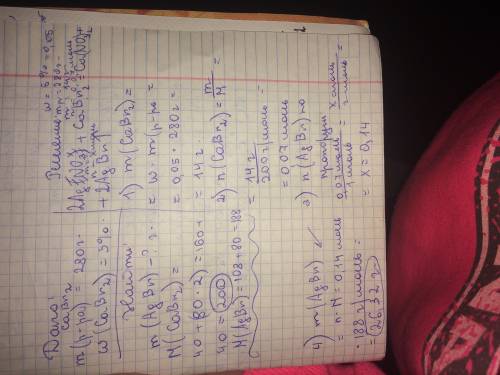 Дано:
CaBr2
m(р-ра) = 280 г.
w(CaBr2) = 5%.
Найти
m(AgBr) - ? г.
M(CaBr2) =
40 + 80·2) = 160 +
40 = 200
M(AgBr) = 108 + 80 = 188
Решение
w = 5% = 0,05
m р-ра = 280 г
2AgNO3 + CaBr2 = Ca(NO3)2
+ 2AgBr
1) m(CaBr2) =
= w · m(р-ра =
= 0,05 · 280 г =
= 14 г.
2) n(CaBr2) = m/M =
= 14 г / 200 г/моль =
= 0,07 моль
3) n(AgBr) по
пропорции
0,07 моль / 1 моль = x моль / 2 моль =
= x = 0,14
4) m(AgBr)
= n · M = 0,14 моль
· 188 г/моль =
= 26,32 г